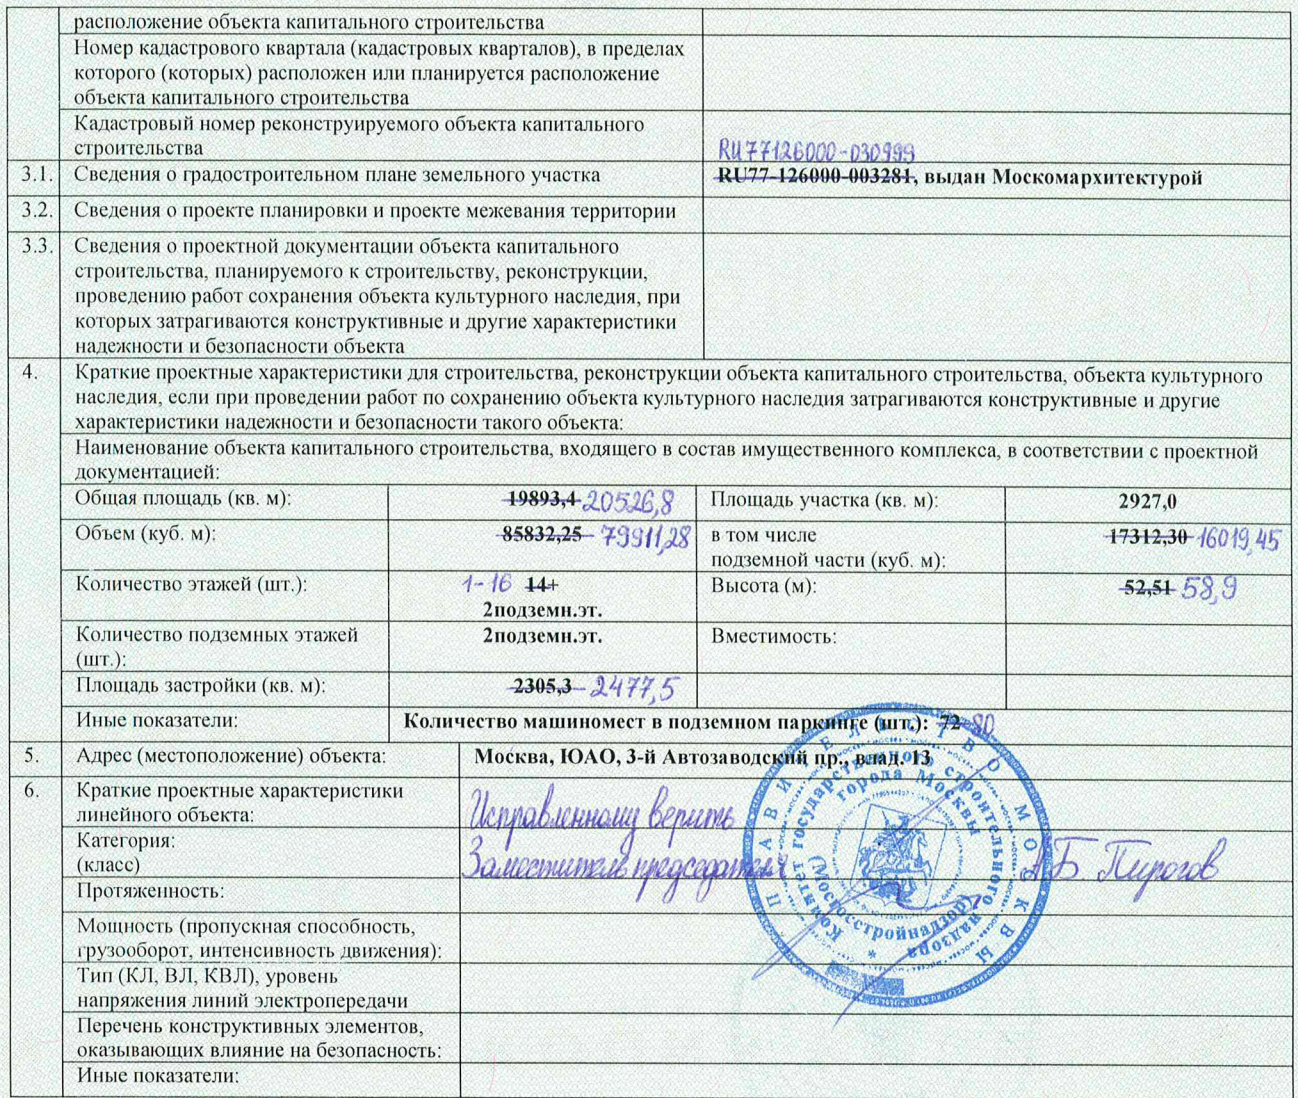 расположение объекта капитального строительства
Номер кадастрового квартала (кадастровых кварталов), в пределах
которого (которых) расположен или планируется расположение
объекта капитального строительства
Кадастровый номер реконструируемого объекта капитального
строительства
RU77126000-030999
3.1. Сведения о градостроительном плане земельного участка RU77-126000-003281, выдан Москомархитектурой
3.2. Сведения о проекте планировки и проекте межевания территории
3.3. Сведения о проектной документации объекта капитального
строительства, планируемого к строительству, реконструкции,
проведению работ сохранения объекта культурного наследия, при
которых затрагиваются конструктивные и другие характеристики
надежности и безопасности объекта
4. Краткие проектные характеристики для строительства, реконструкции объекта капитального строительства, объекта культурного
наследия, если при проведении работ по сохранению объекта культурного наследия затрагиваются конструктивные и другие
характеристики надежности и безопасности такого объекта:
Наименование объекта капитального строительства, входящего в состав имущественного комплекса, в соответствии с проектной
документацией:
Общая площадь (кв. м): 19893,4 20526,8 Площадь участка (кв. м): 2927,0
Объем (куб. м): 85832,25 79911,28 в том числе
подземной части (куб. м): 17312,30 16019,45
Количество этажей (шт.): 1-16 14+
2подземн.эт.
Высота (м): 52,51 58,9
Количество подземных этажей
(шт.):
2подземн.эт.
Вместимость:
Площадь застройки (кв. м): 2305,3 2477,5
Иные показатели: Количество машиномест в подземном паркинге (шт.): 72 80
5. Адрес (местоположение) объекта: Москва, ЮАО, 3-й Автозаводский пр., влад. 13
6. Краткие проектные характеристики
линейного объекта:
Исправленному верить
Категория:
(класс)
Заместитель председателя Б. Пирогов
Протяженность:
Мощность (пропускная способность,
грузооборот, интенсивность движения):
Тип (КЛ, ВЛ, КВЛ), уровень
напряжения линий электропередачи
Перечень конструктивных элементов,
оказывающих влияние на безопасность:
Иные показатели:
ПРАВИТЕЛЬСТВО МОСКВЫ
Комитет государственного строительного надзора
города Москвы
(Мосгосстройнадзор)